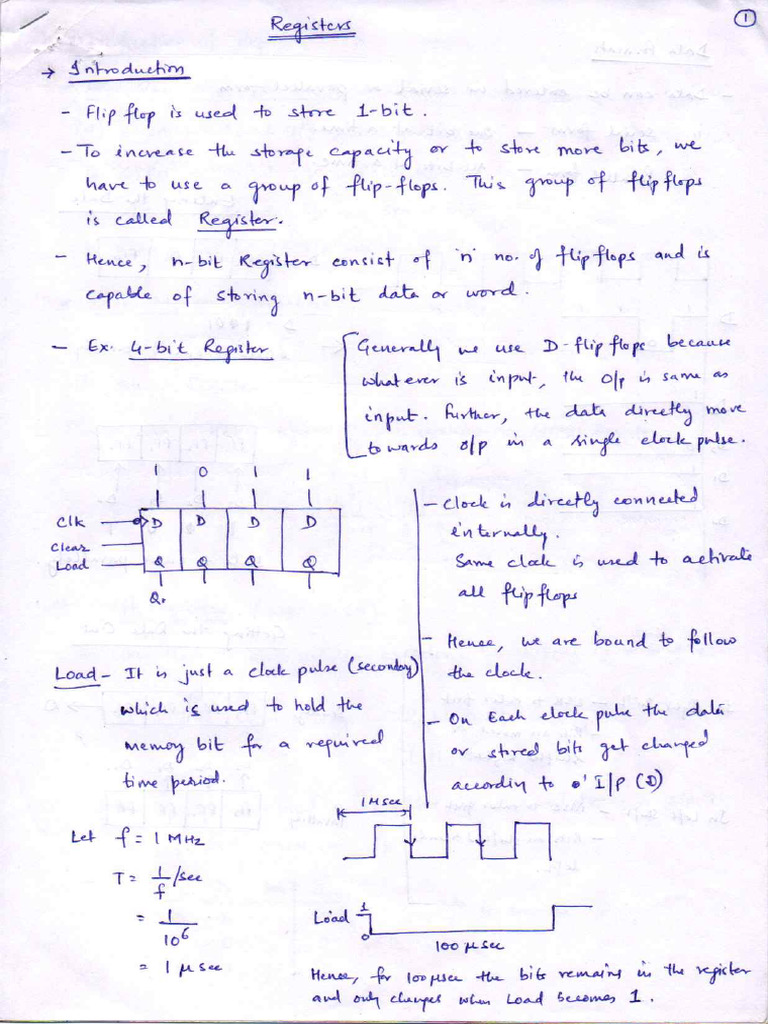 Registers
1
→ Introduction
- Flip flop is used to store 1-bit.
- To increase the storage capacity or to store more bits, we
have to use a group of flip-flops. This group of flip flops
is called Register.
- Hence, n-bit Register consist of 'n' no. of flip flops and is
capable of storing n-bit data or word.
- Ex. 4-bit Register
Generally we use D-flip flops because
whatever is input, the O/p is same as
input. Further, the data directly move
towards o/p in a single clock pulse.
1 0 1 1
Clk D D D D
Clear
Load Q Q Q Q
Q.
- Clock is directly connected
internally.
Same clock is used to activate
all flip flops
- Hence, we are bound to follow
the clock.
- On Each clock pulse the data
or stored bits get changed
accordin to I/P (D)
Load - It is just a clock pulse (secondary)
which is used to hold the
memory bit for a required
time period.
1 μsec
Let f = 1 MHz
T = 1/f /sec
= 1/10⁶
= 1 μsec
Load 1
0
100 μsec
Hence, for 100 μsec the bits remains in the register
and only changes when Load becomes 1.